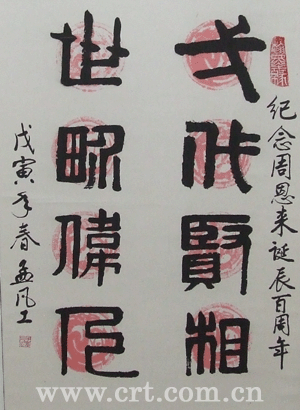 纪念周恩来诞辰百周年
弌代賢相
世畍偉
戊寅年春孟凡工
www.crt.com.cn